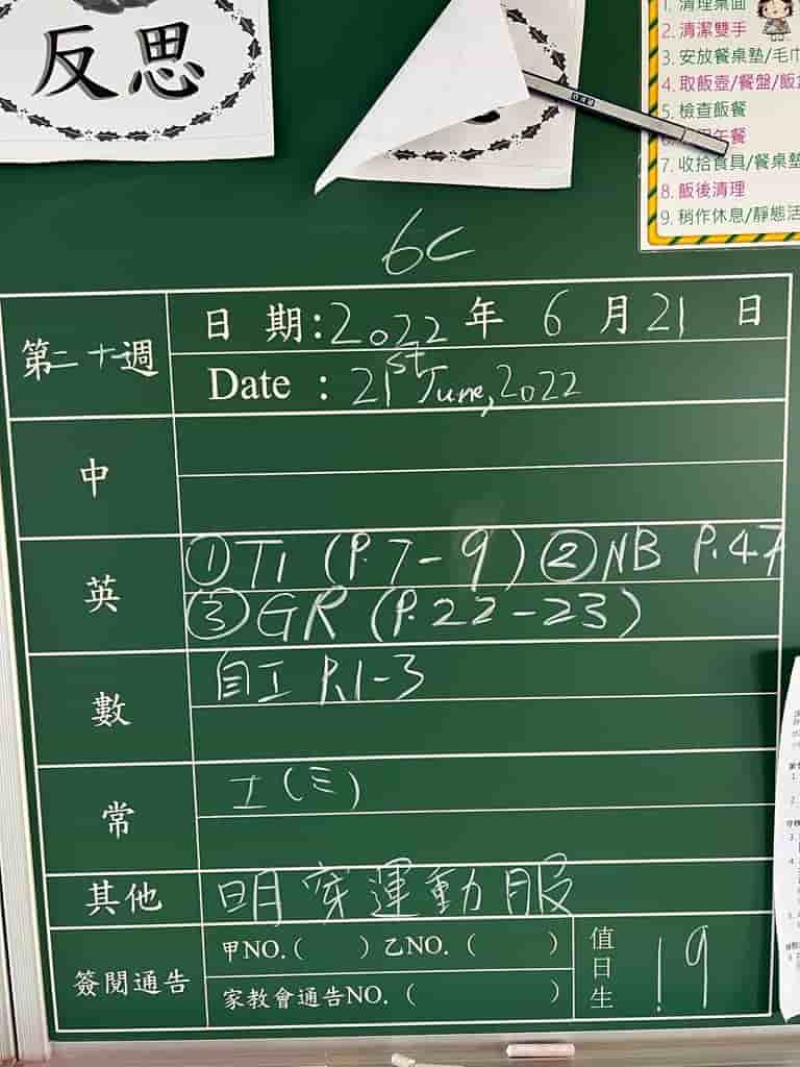 反思
1. 清理桌面
2. 清潔雙手
3. 安放餐桌墊/毛巾
4. 取飯壺/餐盤/飯
5. 檢查飯餐
午餐
7. 收拾食具/餐桌墊
8. 飯後清理
9. 稍作休息/靜態活
6C
第二十一週
日 期:2022 年 6 月 21 日
Date : 21st June, 2022
中
英
①T1 (P.7-9) ②NB P.47
③GR (P.22-23)
數
自工 P.1-3
常
工(三)
其他
明穿運動服
簽閱通告
甲NO.( ) 乙NO. ( )
家教會通告NO. ( )
值日生
19